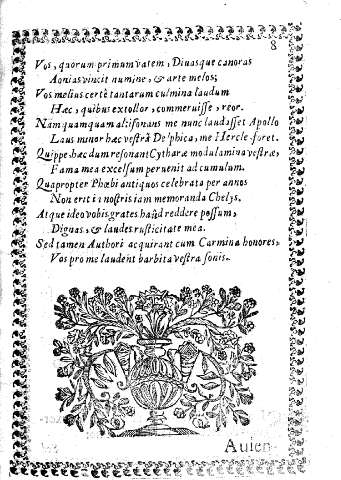 8
Vos, quorum primum vatem, Divasque canoras
Aonias vincit numine, & arte melos;
Vos melius certè tantarum culmina laudum
Hæc, quibus extollor, commeruisse, reor.
Nam quamquam altisonans me nunc laudasset Apollo
Laus minor hæc vestrâ Delphica, me Hercle foret.
Quippe hæc dum resonant Cytharæ modulamina vestræ,
Fama mea excelsum pervenit ad cumulum.
Quapropter Phœbi antiquos celebrata per annos
Non erit in nostris iam memoranda Chelys.
Atque ideo vobis grates haud reddere possum,
Dignas, & laudes rusticitate mea.
Sed tamen Authori acquirant cum Carmina honores,
Vos pro me laudent barbita vestra sonis.
Auien-